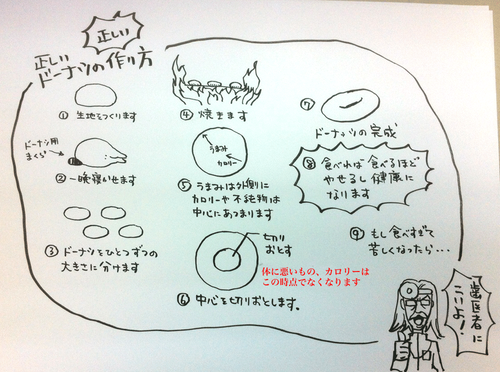 正しい
正しい
ドーナツの作り方
① 生地をつくります
ドーナツ用
まくら
② 一晩寝かせます
③ ドーナツをひとつずつの
大きさに分けます
④ 焼きます
うまみ
カロリー
⑤ うまみは外側に
カロリーや不純物は
中心にあつまります
切り
おとす
体に悪いもの、カロリーは
この時点でなくなります
⑥ 中心を切りおとします。
⑦
ドーナッツの完成
⑧ 食べれば食べるほど
やせるし健康に
なります
⑨ もし食べすぎて
苦しくなったら・・・
歯医者に
こいよ!